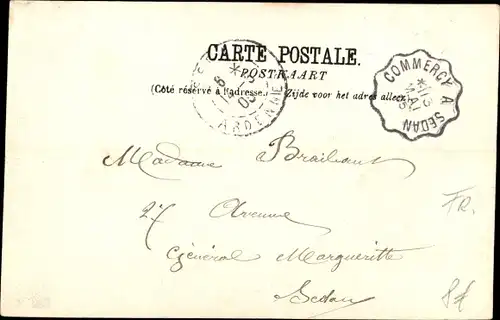 CARTE POSTALE.
POSTKAART
(Côté réservé à l'adresse.) Zijde voor het adres alleen.
ARDENNE
COMMERCY A SEDAN
13
MAI
Madame
27 Avenue
Général Margueritte
Sedan
FR.
8€